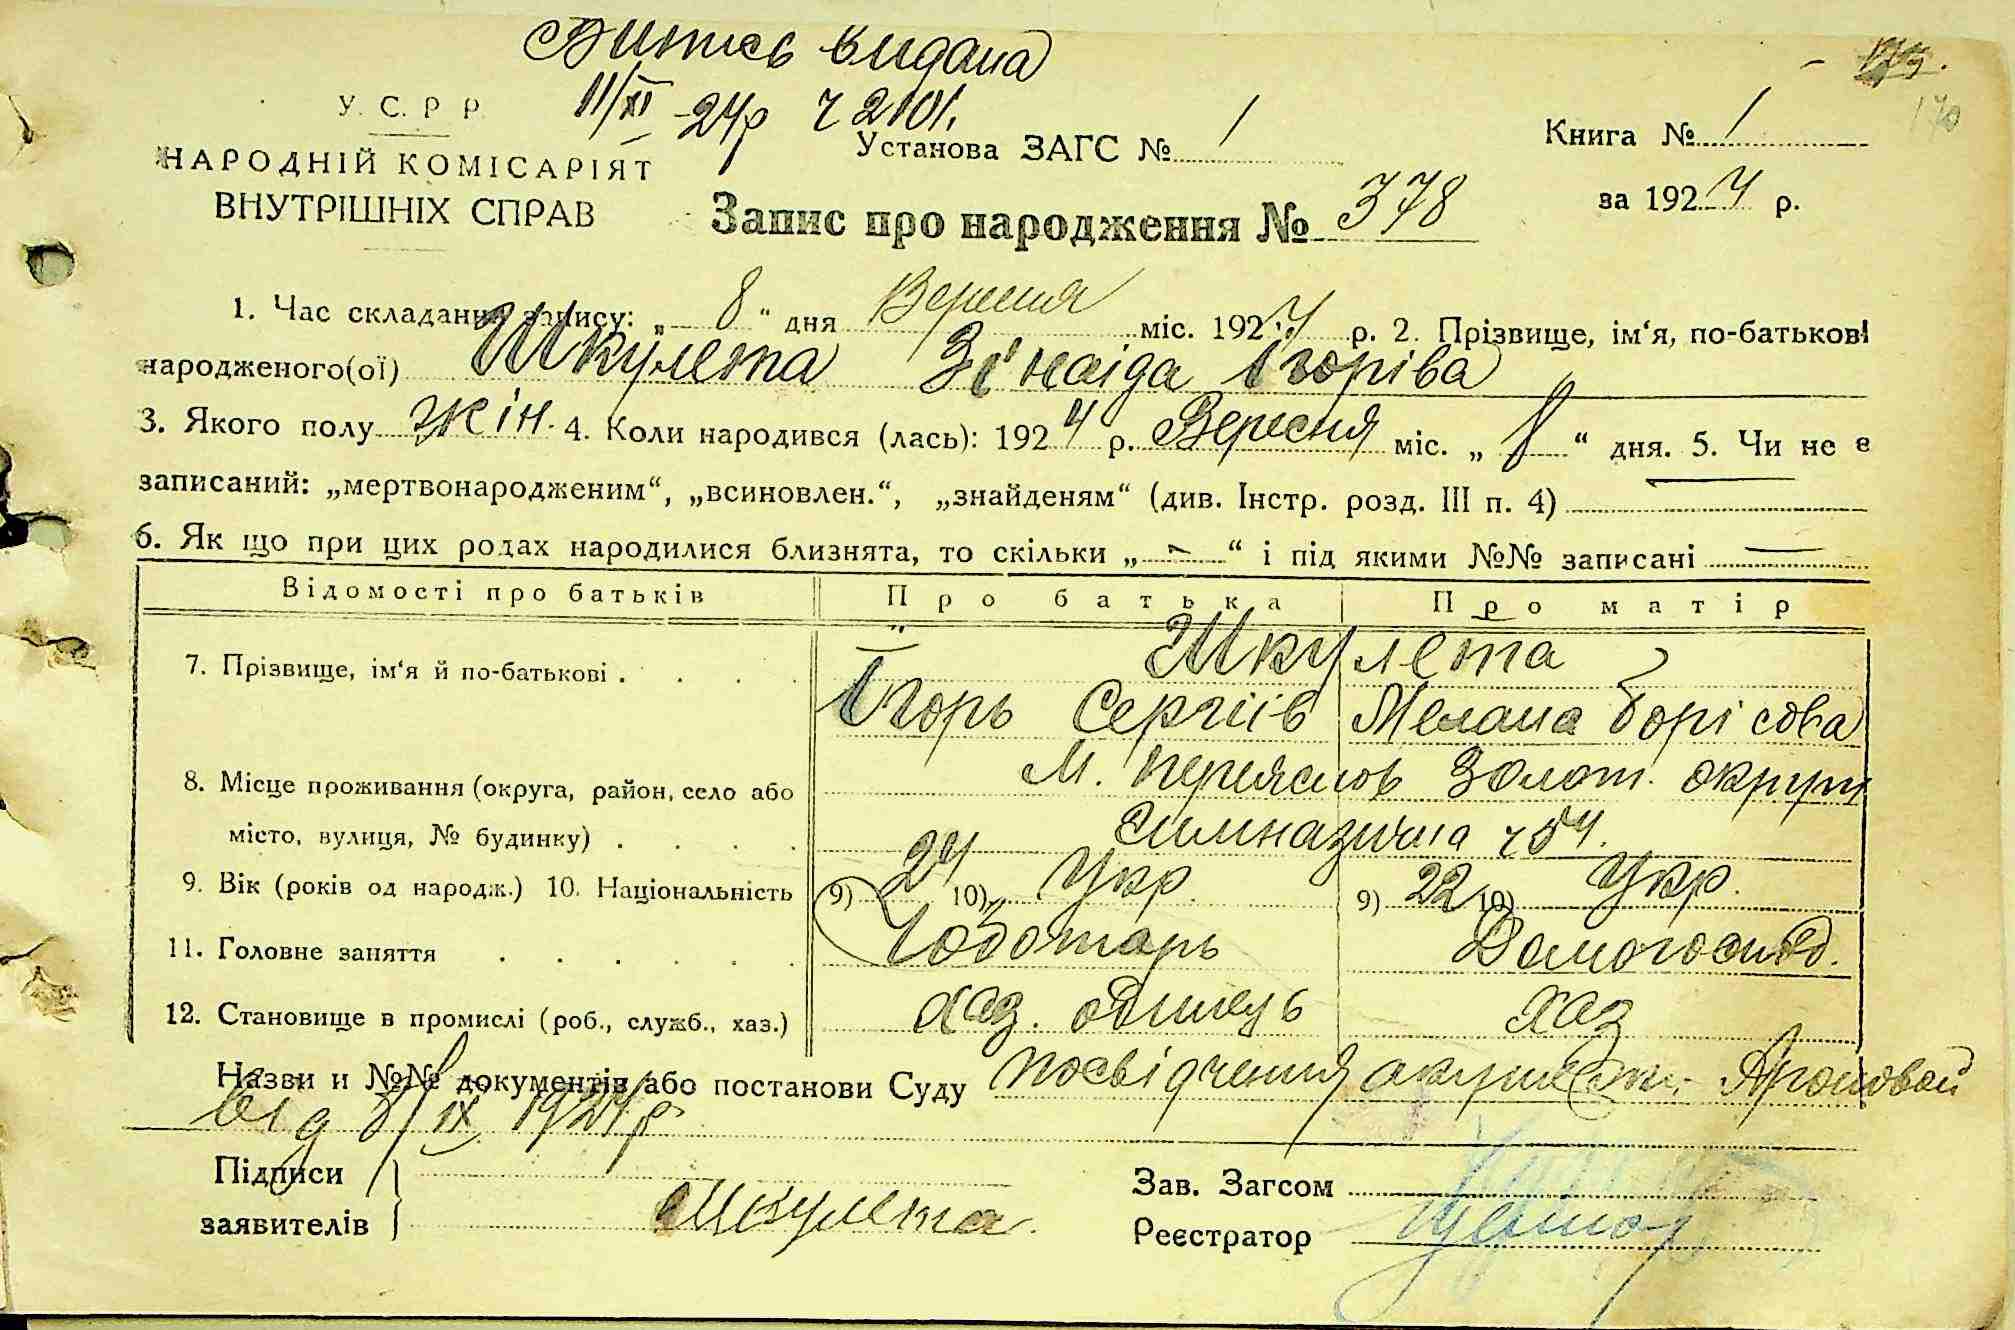 Витяг видана
11/XI -24р ч 2101.
У. С. Р Р
Установа ЗАГС № 1
Книга № 1
170
НАРОДНІЙ КОМІСАРІЯТ
ВНУТРІШНІХ СПРАВ
Запис про народження № 378
за 1924 р.
1. Час складання запису: „ 8 “ дня Вересня міс. 1924 р. 2. Прізвище, ім‘я, по-батькові
народженого(ої) Шкулета Зінаіда Ігоріва
3. Якого полу жін. 4. Коли народився (лась): 1924 р. Вересня міс. „ 8 “ дня. 5. Чи не є
записаний: „мертвонародженим“, „всиновлен.“, „знайденям“ (див. Інстр. розд. III п. 4) —
6. Як що при цих родах народилися близнята, то скільки „ - “ і під якими №№ записані —
Відомості про батьків Про батька Про матір
7. Прізвище, ім‘я й по-батькові . . . . Шкулета
Ігорь Сергіів Мелана Борісова
8. Місце проживання (округа, район, село або М. Переяслов Золот. округи
місто, вулиця, № будинку) . . . . Гимназична ч 54.
9. Вік (років од народж.) 10. Національність 9) 24 10) Укр 9) 22 10) Укр.
11. Головне заняття . . . . . . Чоботарь Домогоспод.
12. Становище в промислі (роб., служб., хаз.) хаз. одинець хаз
Назви и №№ документів або постанови Суду посвідчення акушерки
від 8/IX 1924р
Підписи
заявителів Шкулета
Зав. Загсом
Реєстратор